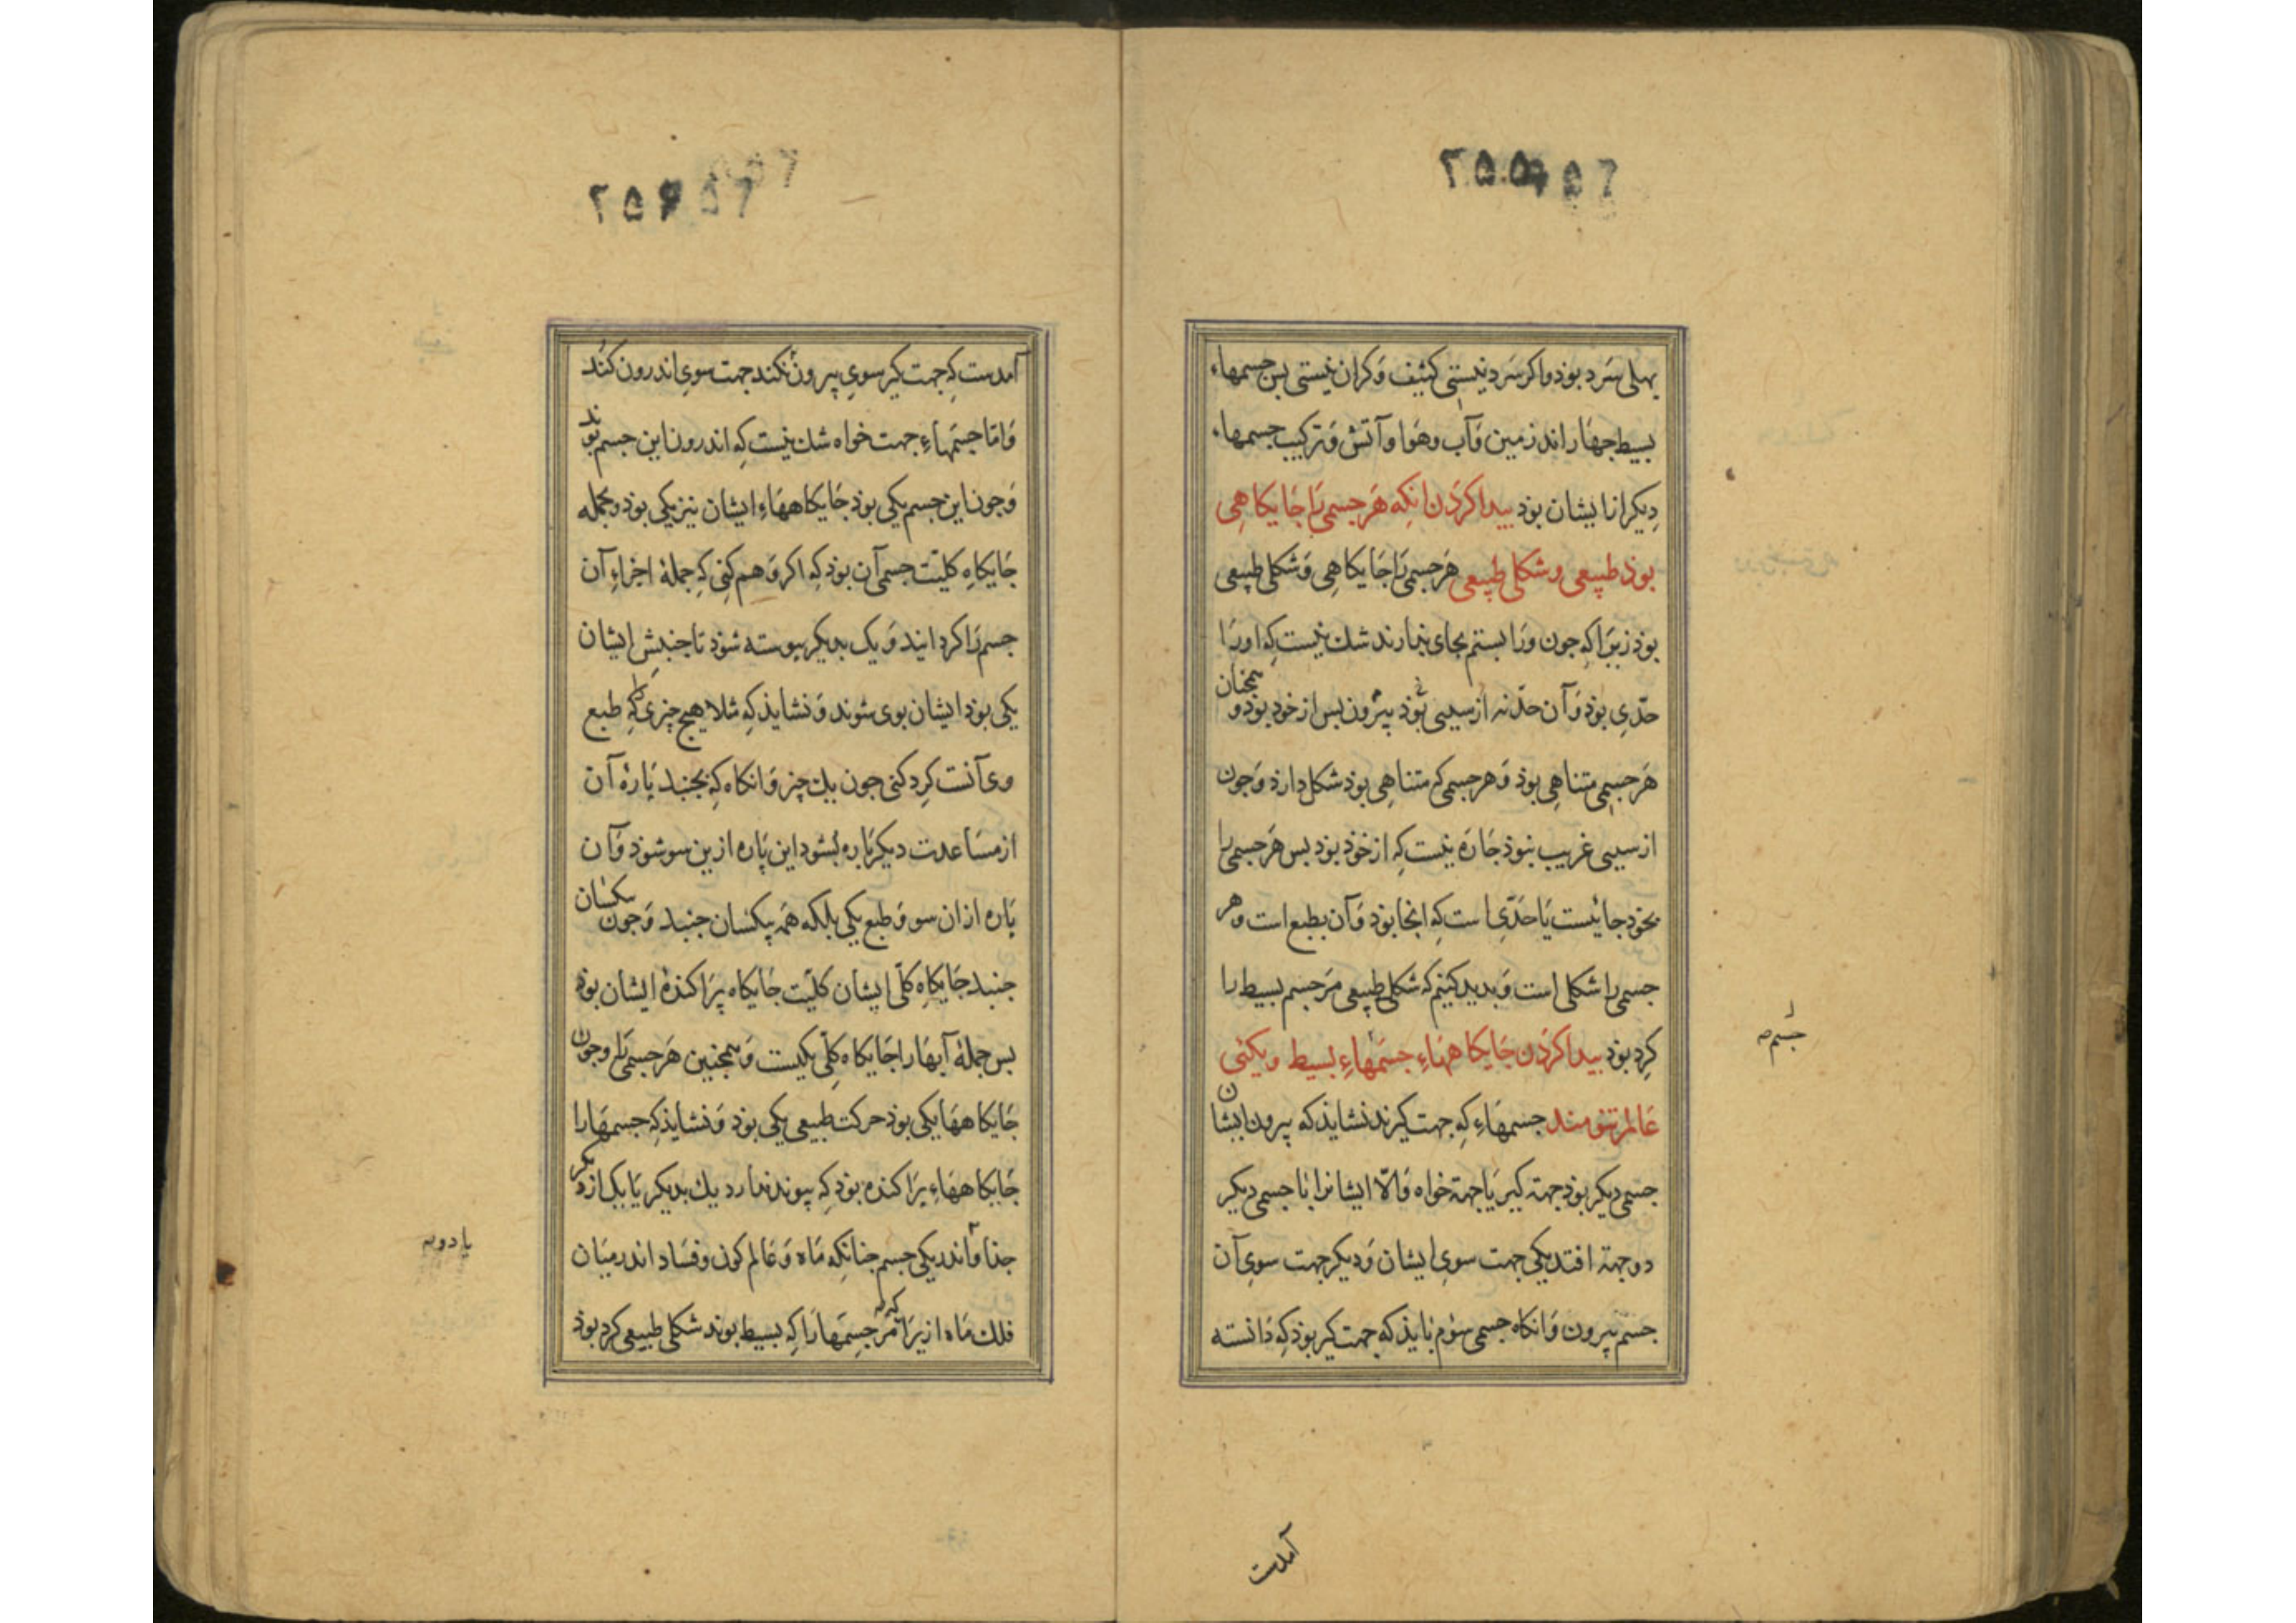 ۲۵۵
بهلی سرد بوذ واکر سرد نیستی کثیف و کران نیستی بس جسمهاء
بسیط جهار اند زمین و آب و هوا و آتش و ترکیب جسمهاء
دیکر از ایشان بوذ بیدا کردن انکه هر جسمی را جایکاهی
بوذ طبیعی و شکلی طبیعی هر جسمی را جایکاهی و شکلی طبیعی
بوذ زیرا که جون ورا بستم بجای نیارند شك نیست که اورا
حدّی بوذ و آن حدّ نه از سببی بوذ بیرون بس از خود بوذ و همجنان
هر جسمی متناهی بوذ و هر جسمی که متناهی بوذ شکل دارذ و جون
از سببی غریب نبوذ جاره نیست که از خوذ بوذ بس هر جسمی را
بخود جائیست یا حدّی است که انجا بوذ و آن بطبع است و هر
جسمی را شکلی است و بدید کنیم که شکلی طبیعی مر جسم بسیط را
کرد بوذ بیدا کردن جایکاههاء جسمهاء بسیط و یکئی
عالم تنومند جسمهاء که جهت کیرند نشایذ که بیرون ایشان
جسمی دیکر بوذ جهة کیر یا جهة خواه و الّا ایشانرا با جسمی دیکر
دو جهة افتد یکی جهت سوی ایشان و دیکر جهت سوی آن
جسم بیرون و انکاه جسمی سوم بایذ که جهت کیر بوذ که دانسته
جسم
آمدست
۲۵۶
آمدست که جهت کیر سوی بیرون نکند جهت سوی اندرون کند
و امّا جسمهاء جهت خواه شك نیست که اندرون این جسم بوند
و جون این جسم یکی بوذ جایکاههاء ایشان نیز یکی بوذ و بجمله
جایکاه کلیّت جسمی آن بوذ که اکر وهم کنی که جملهٔ اجزاء آن
جسم را کرد ایند و یک بدیکر بیوسته شوذ تا جنبش ایشان
یکی بوذ ایشان بوی شوند و نشایذ که مثلا هیج چیزی را که طبع
وی آنست کرد کنی جون یك چیز و انکاه که بجنبد پارهٔ آن
از مساعدت دیکر پاره بشود این پاره ازین سو شوذ و آن
پاره از ان سو و طبع یکی بلکه همه یکسان جنبد و جون یکسان
جنبد جایکاه کلّی ایشان کلیّت جایکاه پراکندهٔ ایشان بوذ
بس جملهٔ آبها را جایکاه کلّی یکیست و همجنین هر جسمی را و جون
جایکاهها یکی بوذ حرکت طبیعی یکی بوذ و نشایذ که جسمها را
جایکاههاء پراکنده بوذ که پیوند ندارد یك بدیکر یا یک از دیکر
جذا و اندر یکی جسم جنانکه ماه و عالم کون و فساد اندر میان
فلك ماه ازیرا که مر جسمها را که بسیط بوند شکلی طبیعی کرد بوذ